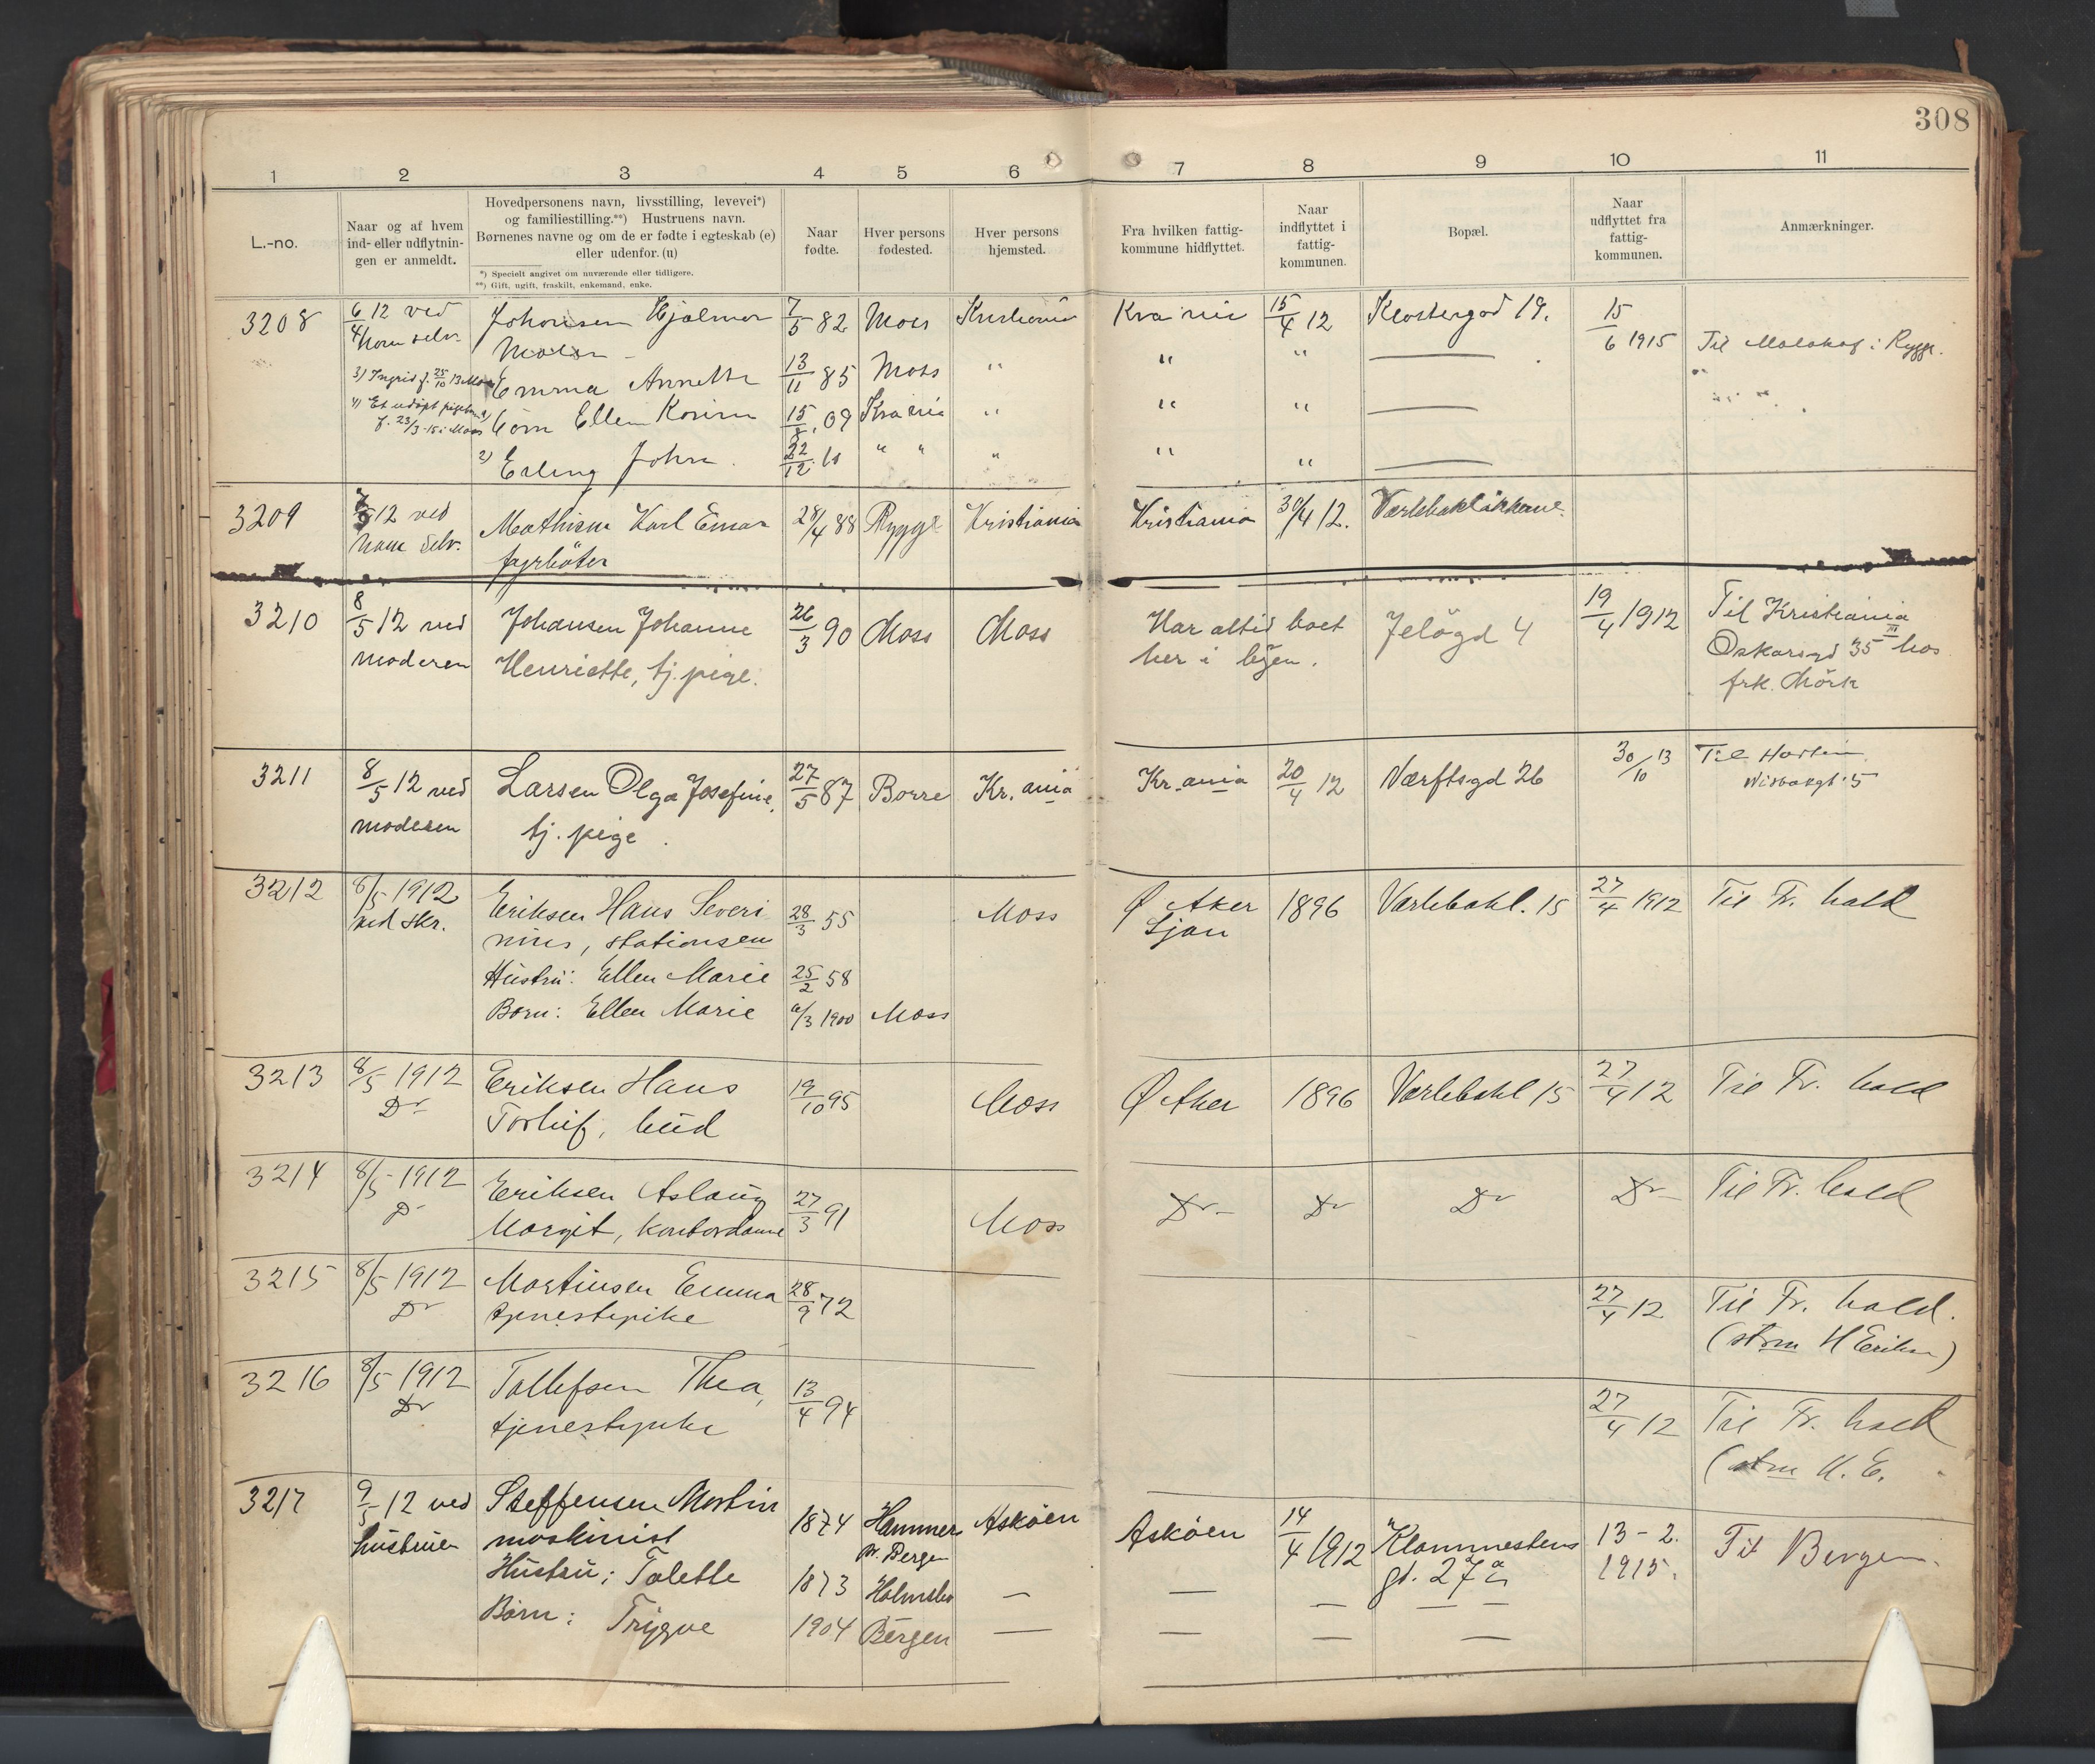 308
1 2 3 4 5 6 7 8 9 10 11
L.-no.
Naar og af hvem
ind- eller udflytnin-
gen er anmeldt.
Hovedpersonens navn, livsstilling, levevei*)
og familiestilling.**) Hustruens navn.
Børnenes navne og om de er fødte i egteskab (e)
eller udenfor. (u)
*) Specielt angivet om nuværende eller tidligere.
**) Gift, ugift, fraskilt, enkemand, enke.
Naar
fødte.
Hver persons
fødested.
Hver persons
hjemsted.
Fra hvilken fattig-
kommune hidflyttet.
Naar
indflyttet i
fattig-
kommunen.
Bopæl.
Naar
udflyttet fra
fattig-
kommunen.
Anmærkninger.
3208 6/4 12 ved Johansen Hjalmar 7/5 82 Moss Kristiania Kra nia 15/4 12 Klostergad 19. 15/6 1915 Til i Rygge.
ham selv. Maler -
3) Ingrid f. 25/10 13 Moss Emma Annette 13/11 85 Moss " " " —
4) Et udøpt pigebarn Børn Ellen Karin 15/8. 09 Kra nia " " " —
f. 23/3-15 i Moss
2) Erling John. 22/12. 10 " " " " " —
3209 12 ved Mathisen Karl Einar 28/4 88 Rygge Kristiania Kristiania 30/4 12. Værlebakløkkene.
ham selv. fyrbøter
3210 8/5 12 ved Johansen Johanne 26/3 90 Moss Moss Har altid boet Jeløgd 4 19/4 1912 Til Kristiania
moderen Henriette, tj. pige. her i byen. Oskarsgd 35 III hos
frk. Mörk
3211 8/5 12 ved Larsen Olga Josefine, 27/5 87 Borre Kr. ania Kr. ania 20/4 12 Værftsgd 26 30/10 13 Til Horten
moderen tj. pige. 5
3212 8/5 1912 Eriksen Hans Severi 28/3 55 Moss Ø Aker 1896 Værlebakl. 15 27/4 1912 Til Fr. hald
ved skr. nius, stationsen Ljan
Hustru: Ellen Marie 25/2 58
Barn: Ellen Marie /3 1900 Moss
3213 8/5 1912 Eriksen Hans 19/10 95 Moss Ø Aker 1896 Værlebakl 15 27/4 12 Til Fr. hald
Do Torleif, bud
3214 8/5 1912 Eriksen Aslaug 27/3 91 Moss Do Do Do Do Til Fr. hald
Do Margit, kontordame
3215 8/5 1912 Martinsen Emma 28/9 72 27/4 12 Til Fr. hald.
Do tjenestepike (stm H Eriksen)
3216 8/5 1912 Tollefsen Thea, 13/4 94 27/4 12 Til Fr. hald
Do tjenestepike (stm H. E.
3217 9/5 12 ved Steffensen Martin 1874 Hammer Askøen Askøen 14/4 1912 Klommestens 13-2. Til Bergen.
hustruen maskinist pr. Bergen gt. 27 a 1915.
Hustru: Talette 1873 Holmsbo — — — — —
Børn: Trygve 1904 Bergen — — — —